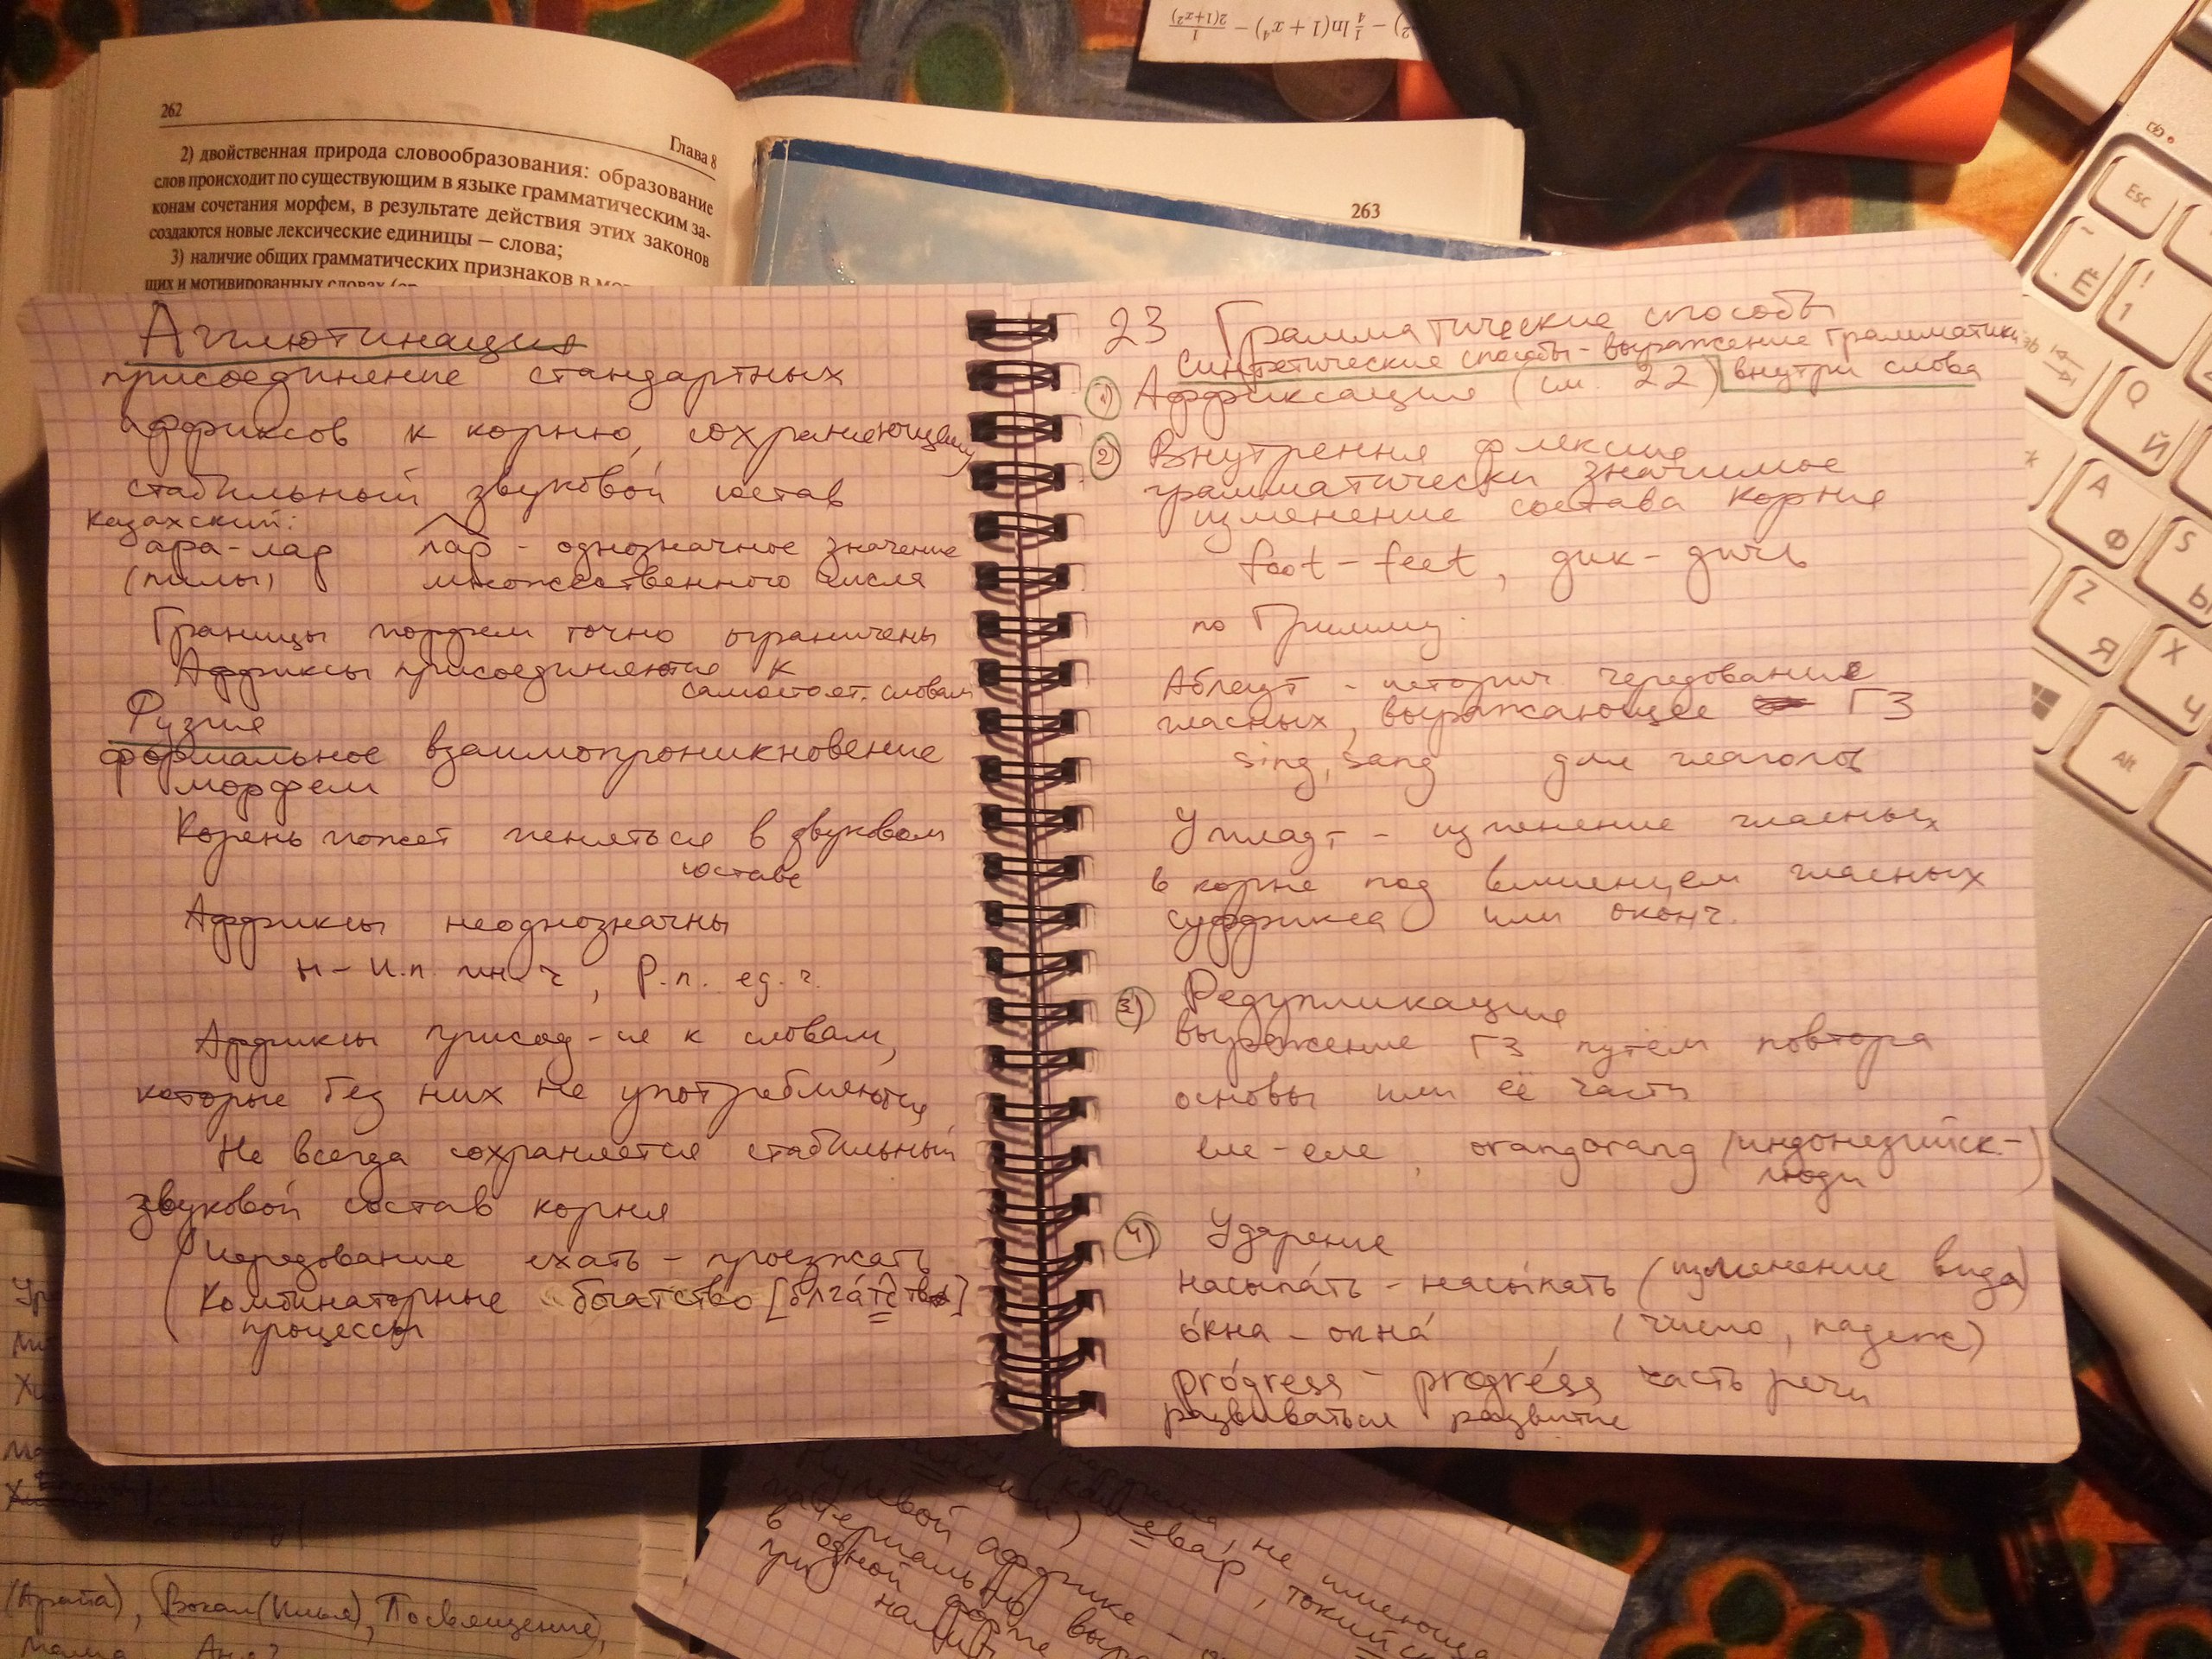 262
Глава 8
2) двойственная природа словообразования: образование
слов происходит по существующим в языке грамматическим за-
конам сочетания морфем, в результате действия этих законов
создаются новые лексические единицы – слова;
3) наличие общих грамматических признаков в
щих и мотивированных словах
263
Агглютинация
присоединение стандартных
аффиксов к корню, сохраняющему
стабильный звуковой состав
казахский:
ара-лар лар - однозначное значение
(пилы) множественного числа
Границы морфем точно ограничены
Аффиксы присоединяются к
самостоят. словам
Фузия
формальное взаимопроникновение
морфем
Корень может меняться в звуковом
составе
Аффиксы неоднозначны
ы - И.п. мн.ч, Р.п. ед.ч.
Аффиксы присоед-ся к словам,
которые без них не употребляются
Не всегда сохраняется стабильный
звуковой состав корня
Чередование ехать - проезжать
Комбинаторные богатство
процессы
23 Грамматические способы
Синтетические способы - выражение грамматики
внутри слова
1) Аффиксация (см. 22)
2) Внутрення флексия
грамматически значимое
изменение состава корня
foot - feet, дик - дичь
по Гримму:
Аблаут - историч. чередование
гласных, выражающее ГЗ
sing, sang для глаголов
Умлаут - изменение гласных
в корне под влиянием гласных
суффикса или оконч.
3) Редупликация
выражение ГЗ путём повтора
основы или её части
еле-еле, orangorang (индонезийск. -
люди)
4) Ударение
насыпа́ть - насы́пать (изменение вида)
о́кна - окна́ (число, падеж)
prógress - progréss часть речи
развиваться развитие
Esc
Ё
!
1
Q
Й
A
Ф
S
Ы
Z
Я
X
Ч
Alt
(Агата), Вокал (Илья), Посвящение,